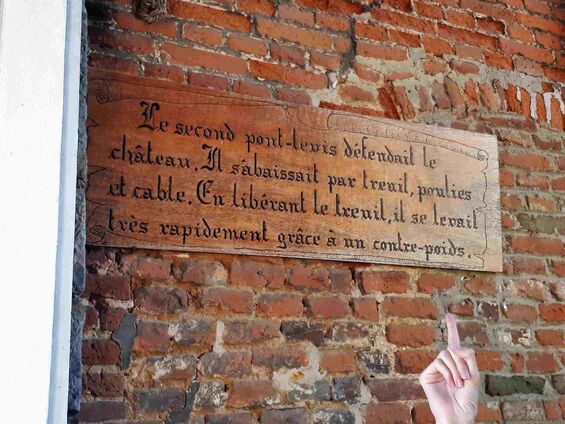 Le second pont-levis défendait le
château. Il s'abaissait par treuil, poulies
et cable. En libérant le treuil, il se levait
très rapidement grâce à un contre-poids.